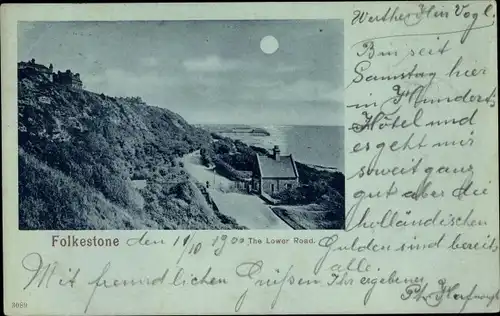 Werther Hin Vogl,
Bin seit
Samstag hier
in
Hôtel und
es geht mir
soweit ganz
gut aber die
holländischen
Gulden sind bereits
alle.
Folkestone
The Lower Road.
den 19/10 1900
Mit freundlichen Grüßen Ihr ergebener
3089